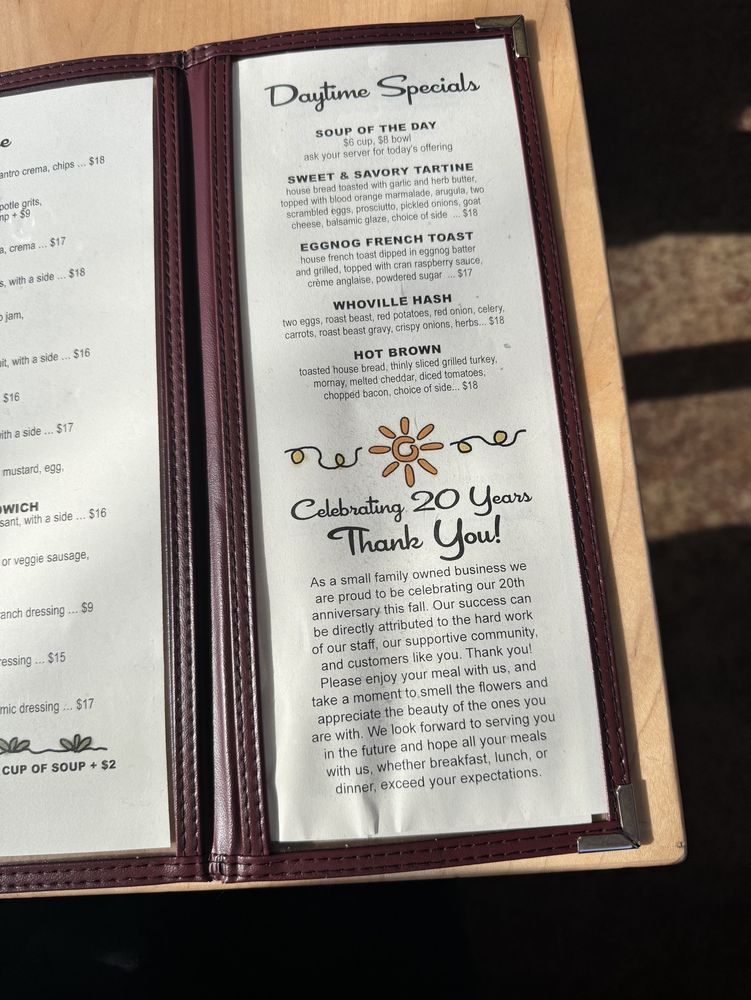 e
antro crema, chips ... $18
potle grits,
mp + $9
a, crema ... $17
s, with a side ... $18
jam,
uit, with a side ... $16
$16
with a side ... $17
mustard, egg,
WICH
sant, with a side ... $16
or veggie sausage,
anch dressing ... $9
ressing ... $15
mic dressing ... $17
CUP OF SOUP + $2
Daytime Specials
SOUP OF THE DAY
$6 cup, $8 bowl
ask your server for today's offering
SWEET & SAVORY TARTINE
house bread toasted with garlic and herb butter,
topped with blood orange marmalade, arugula, two
scrambled eggs, prosciutto, pickled onions, goat
cheese, balsamic glaze, choice of side ... $18
EGGNOG FRENCH TOAST
house french toast dipped in eggnog batter
and grilled, topped with cran raspberry sauce,
crème anglaise, powdered sugar ... $17
WHOVILLE HASH
two eggs, roast beast, red potatoes, red onion, celery,
carrots, roast beast gravy, crispy onions, herbs... $18
HOT BROWN
toasted house bread, thinly sliced grilled turkey,
mornay, melted cheddar, diced tomatoes,
chopped bacon, choice of side... $18
Celebrating 20 Years
Thank You!
As a small family owned business we
are proud to be celebrating our 20th
anniversary this fall. Our success can
be directly attributed to the hard work
of our staff, our supportive community,
and customers like you. Thank you!
Please enjoy your meal with us, and
take a moment to smell the flowers and
appreciate the beauty of the ones you
are with. We look forward to serving you
in the future and hope all your meals
with us, whether breakfast, lunch, or
dinner, exceed your expectations.